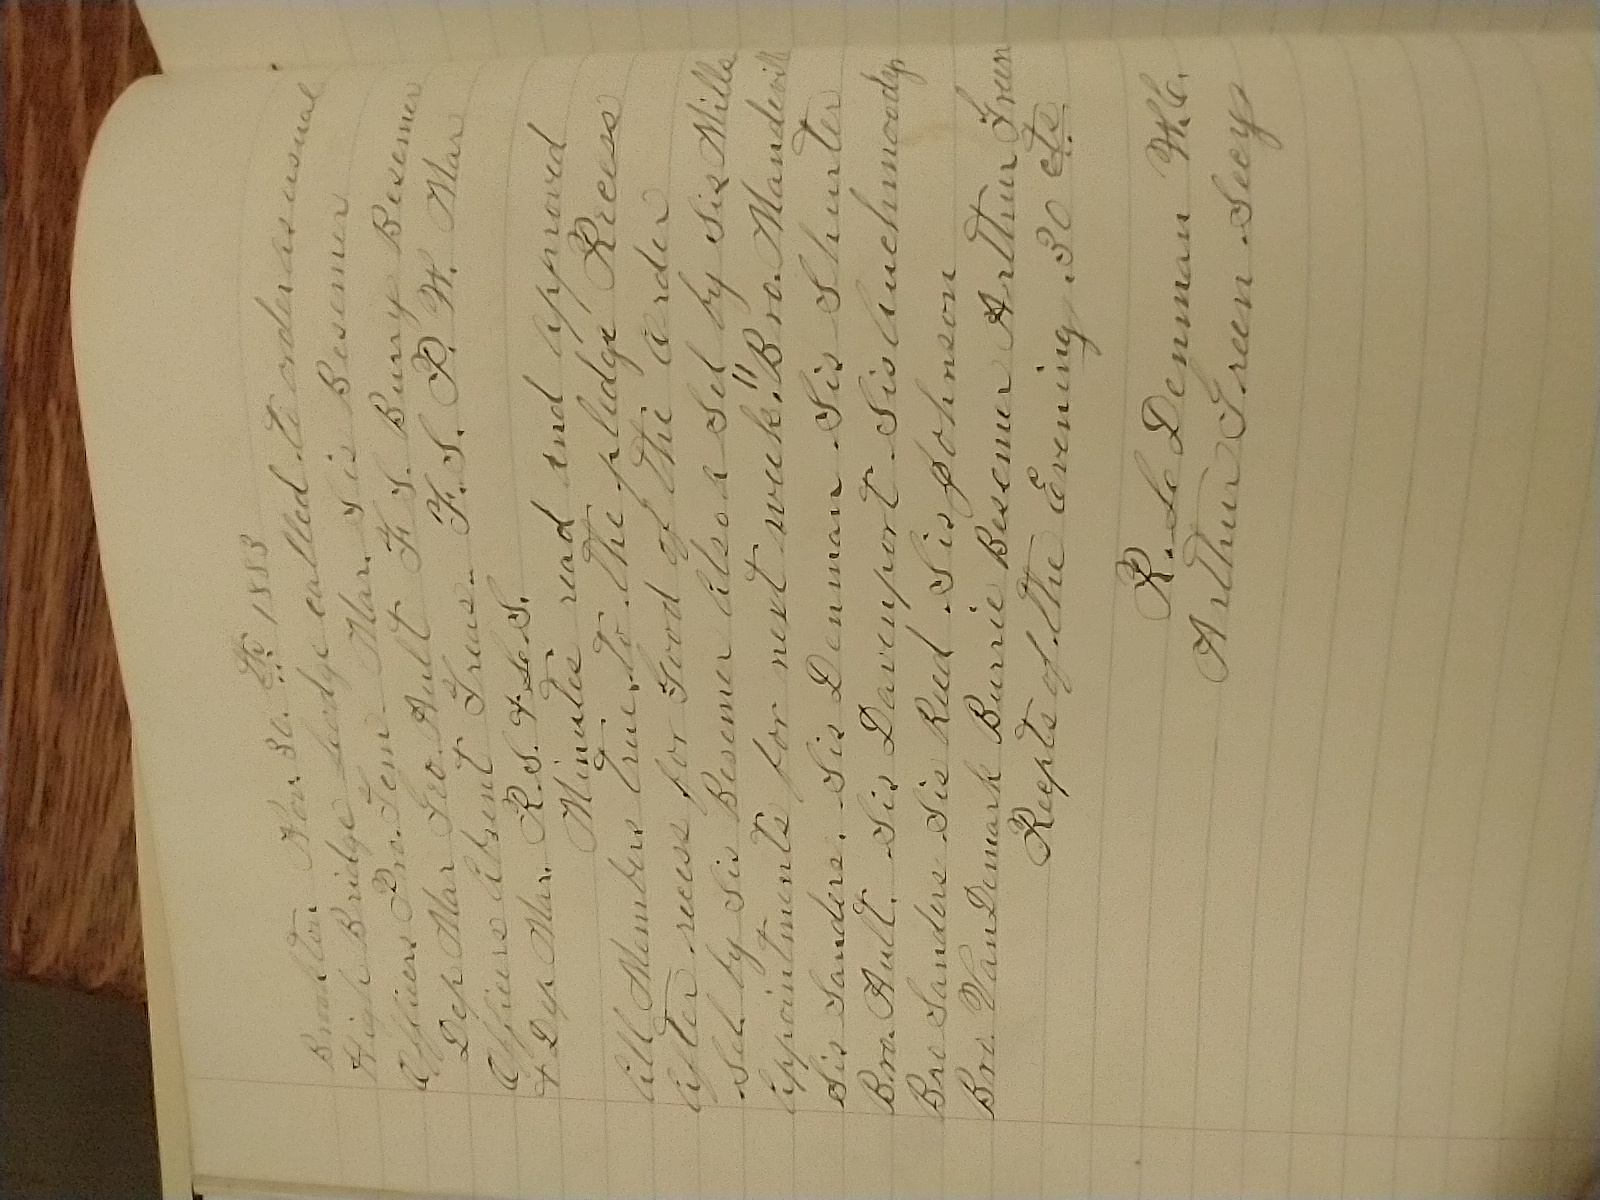 Brookton Nov. 30.th 1883
High Bridge Lodge called to order as usual
Officers Pro. Tem - Mar. Sis Besemer
Dep Mar Geo. Ault F. S. Burry Besemer
Officers Absent Treas. F. S. P. W. Mar
+ Dep Mar. R. S. + L. S.
Minutes read and approved
All Members true to the pledge Recess
After recess for Good of the Order
Sel. by Sis Besemer Also a Sel by Sis Mills
Appointments for next week." Bro. Mandevill
Sis Sanders. Sis Denman Sis Shurter
Bro. Ault. Sis Davenport Sis Auchmoody
Bro Sanders Sis Reed Sis Johnson
Bro. VanDemark Burrie Besemer Arthur Green
Recpts of the Evening .30 cts
R. L Denman W.C.
Arthur Green Secy